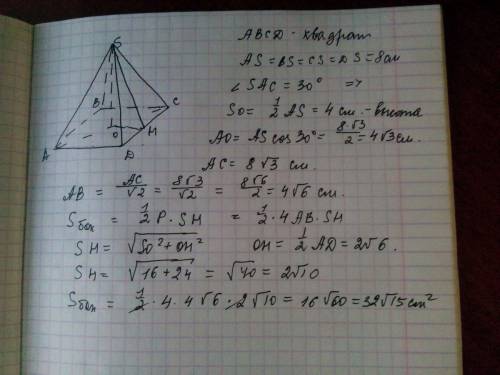 ABCD - квадрат
AS = BS = CS = DS = 8см
∠ SAC = 30° =>
SO = 1/2 AS = 4 см. - высота
AO = AS cos 30° = 8√3/2 = 4√3 см.
AC = 8√3 см.
S
B
C
O
H
A
D
AB = AC/√2 = 8√3/√2 = 8√6/2 = 4√6 см.
Sбок = 1/2 P · SH = 1/2 · 4AB · SH
SH = √(SO² + OH²) OH = 1/2 AD = 2√6.
SH = √(16 + 24) = √40 = 2√10
Sбок = 1/2 · 4 · 4√6 · 2√10 = 16√60 = 32√15 см²